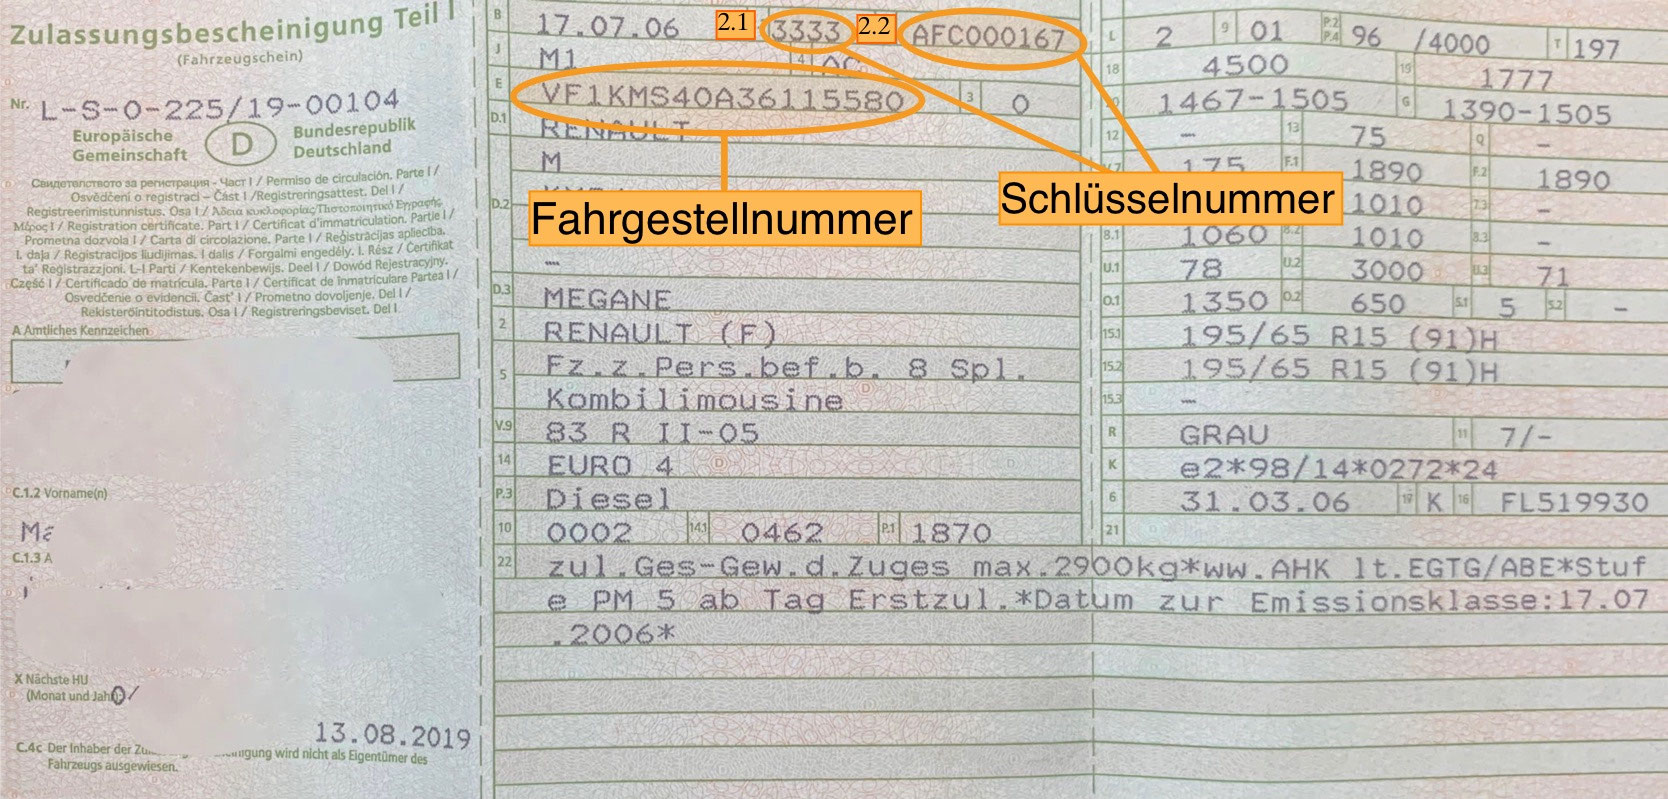 Zulassungsbescheinigung Teil I
(Fahrzeugschein)
Nr. L-S-0-225/19-00104
Europäische Gemeinschaft
D
Bundesrepublik Deutschland
Свидетелство за регистрация - Част I / Permiso de circulación. Parte I /
Osvědčení o registraci – Část I /Registreringsattest. Del I /
Registreerimistunnistus. Osa I / Άδεια κυκλοφορίας/Πιστοποιητικό Εγγραφής
Μέρος I / Registration certificate. Part I / Certificat d'immatriculation. Partie I /
Prometna dozvola I / Carta di circolazione. Parte I / Reģistrācijas apliecība.
I. daļa / Registracijos liudijimas. I dalis / Forgalmi engedély. I. Rész / Ċertifikat
ta' Reġistrazzjoni. L-I Parti / Kentekenbewijs. Deel I / Dowód Rejestracyjny.
Część I / Certificado de matrícula. Parte I / Certificat de înmatriculare Partea I /
Osvedčenie o evidencii. Časť I / Prometno dovoljenje. Del I /
Rekisteröintitodistus. Osa I / Registreringsbeviset. Del I
A Amtliches Kennzeichen
C.1.2 Vorname(n)
C.1.3 A
X Nächste HU
(Monat und Jahr)
13.08.2019
C.4c Der Inhaber der Zu
igung wird nicht als Eigentümer des
Fahrzeugs ausgewiesen.
B 17.07.06 2.1 3333 2.2 AFC000167
J M1 4
E VF1KMS40A36115580 3 0
D.1 RENAULT
M
D.2
Fahrgestellnummer
–
D.3 MEGANE
2 RENAULT (F)
5 Fz.z.Pers.bef.b. 8 Spl.
Kombilimousine
V.9 83 R II-05
14 EURO 4
P.3 Diesel
10 0002 14.1 0462 P.1 1870
L 2 9 01 P.2 P.4 96 /4000 T 197
18 4500 19 1777
1467-1505 G 1390-1505
12 – 13 75 Q –
V.7 175 F.1 1890 F.2 1890
Schlüsselnummer
1010 7.3 –
8.1 1060 8.2 1010 8.3 –
U.1 78 U.2 3000 U.3 71
O.1 1350 O.2 650 S.1 5 S.2 –
15.1 195/65 R15 (91)H
15.2 195/65 R15 (91)H
15.3 –
R GRAU 11 7/-
K e2*98/14*0272*24
6 31.03.06 17 K 16 FL519930
21
22 zul.Ges-Gew.d.Zuges max.2900kg*ww.AHK lt.EGTG/ABE*Stuf
e PM 5 ab Tag Erstzul.*Datum zur Emissionsklasse:17.07
.2006*